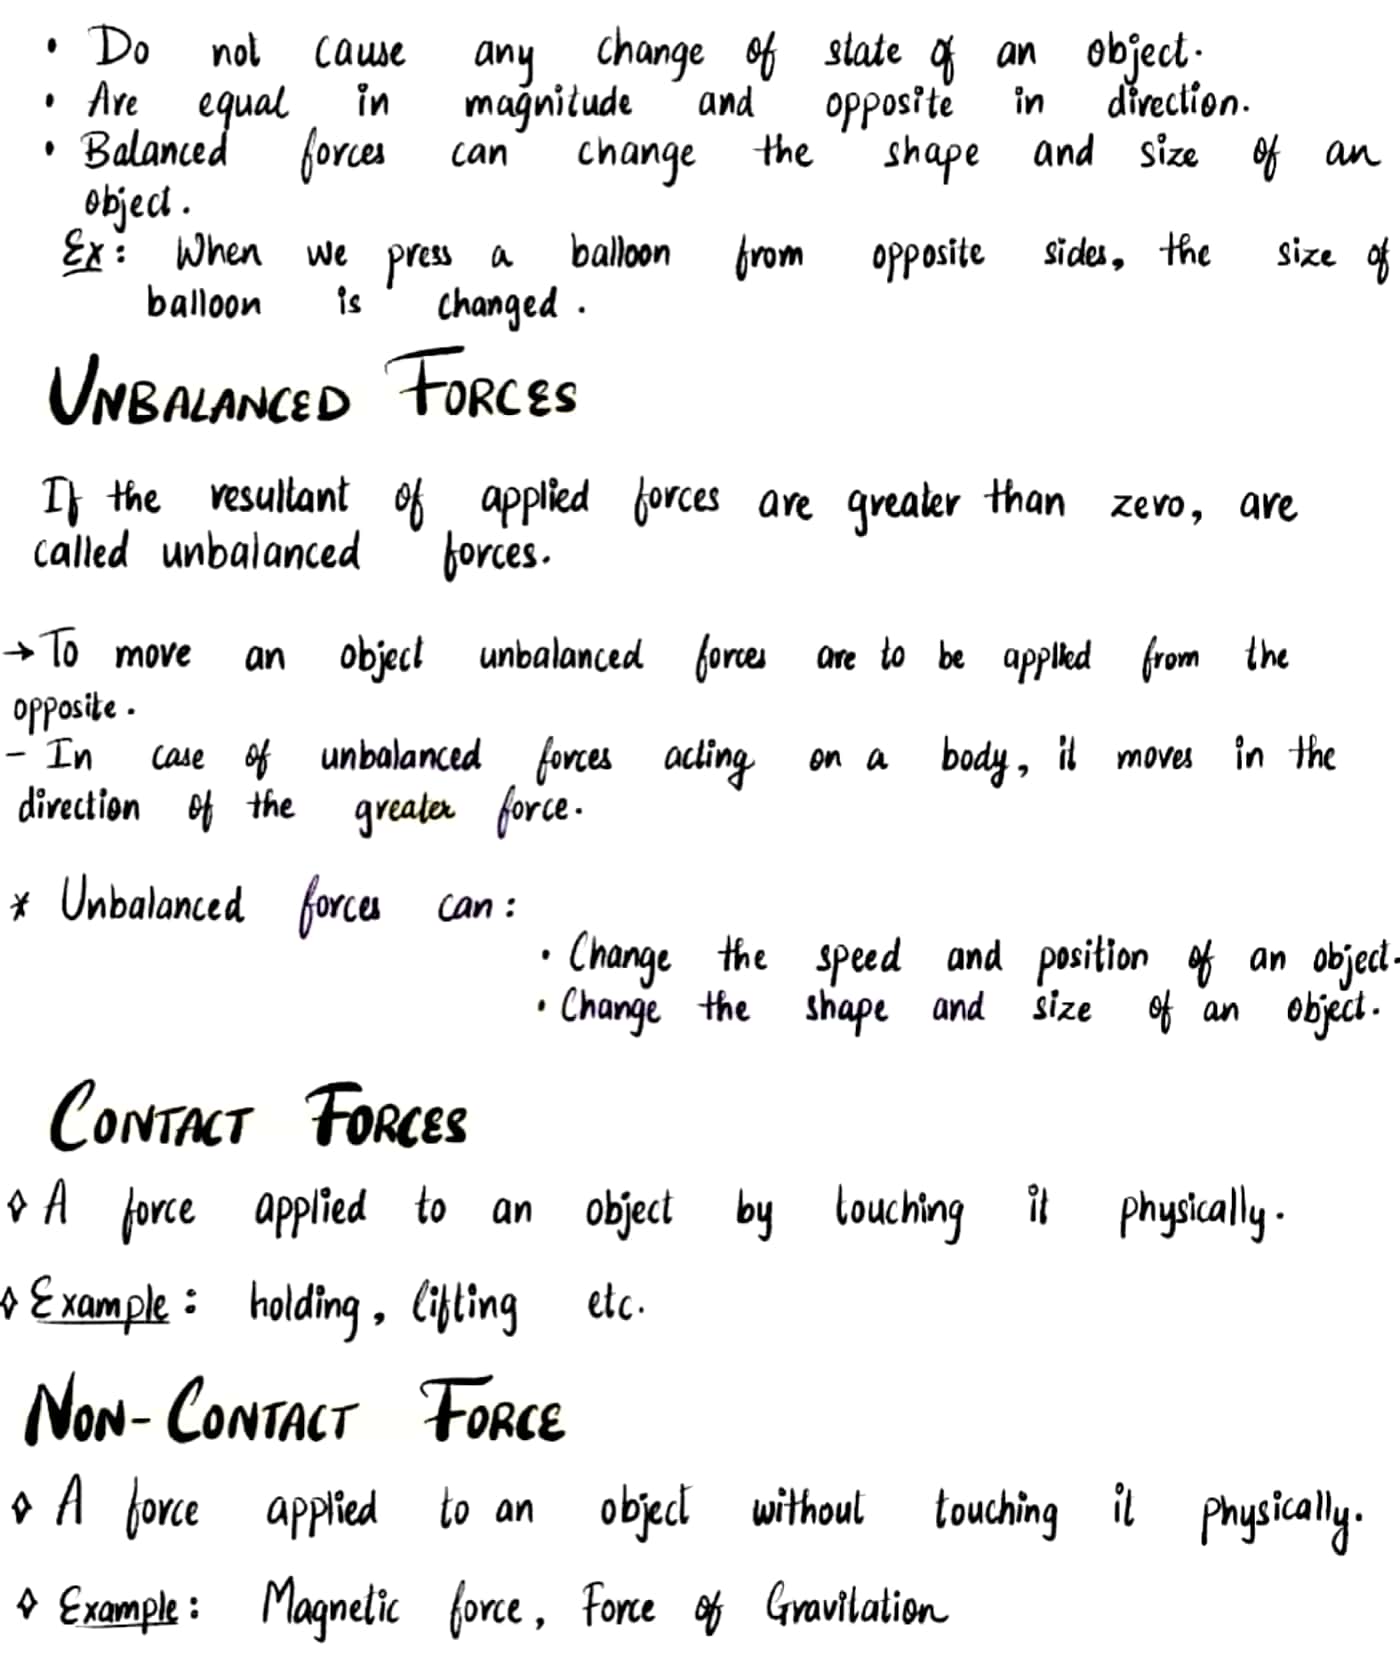 • Do not cause any change of state of an object.
• Are equal in magnitude and opposite in direction.
• Balanced forces can change the shape and size of an
object.
Ex: When we press a balloon from opposite sides, the size of
balloon is changed.
UNBALANCED FORCES
If the resultant of applied forces are greater than zero, are
called unbalanced forces.
→ To move an object unbalanced forces are to be applied from the
opposite.
- In case of unbalanced forces acting on a body, it moves in the
direction of the greater force.
* Unbalanced forces can:
• Change the speed and position of an object.
• Change the shape and size of an object.
CONTACT FORCES
◊ A force applied to an object by touching it physically.
◊ Example: holding, lifting etc.
NON-CONTACT FORCE
◊ A force applied to an object without touching it physically.
◊ Example: Magnetic force, Force of Gravitation